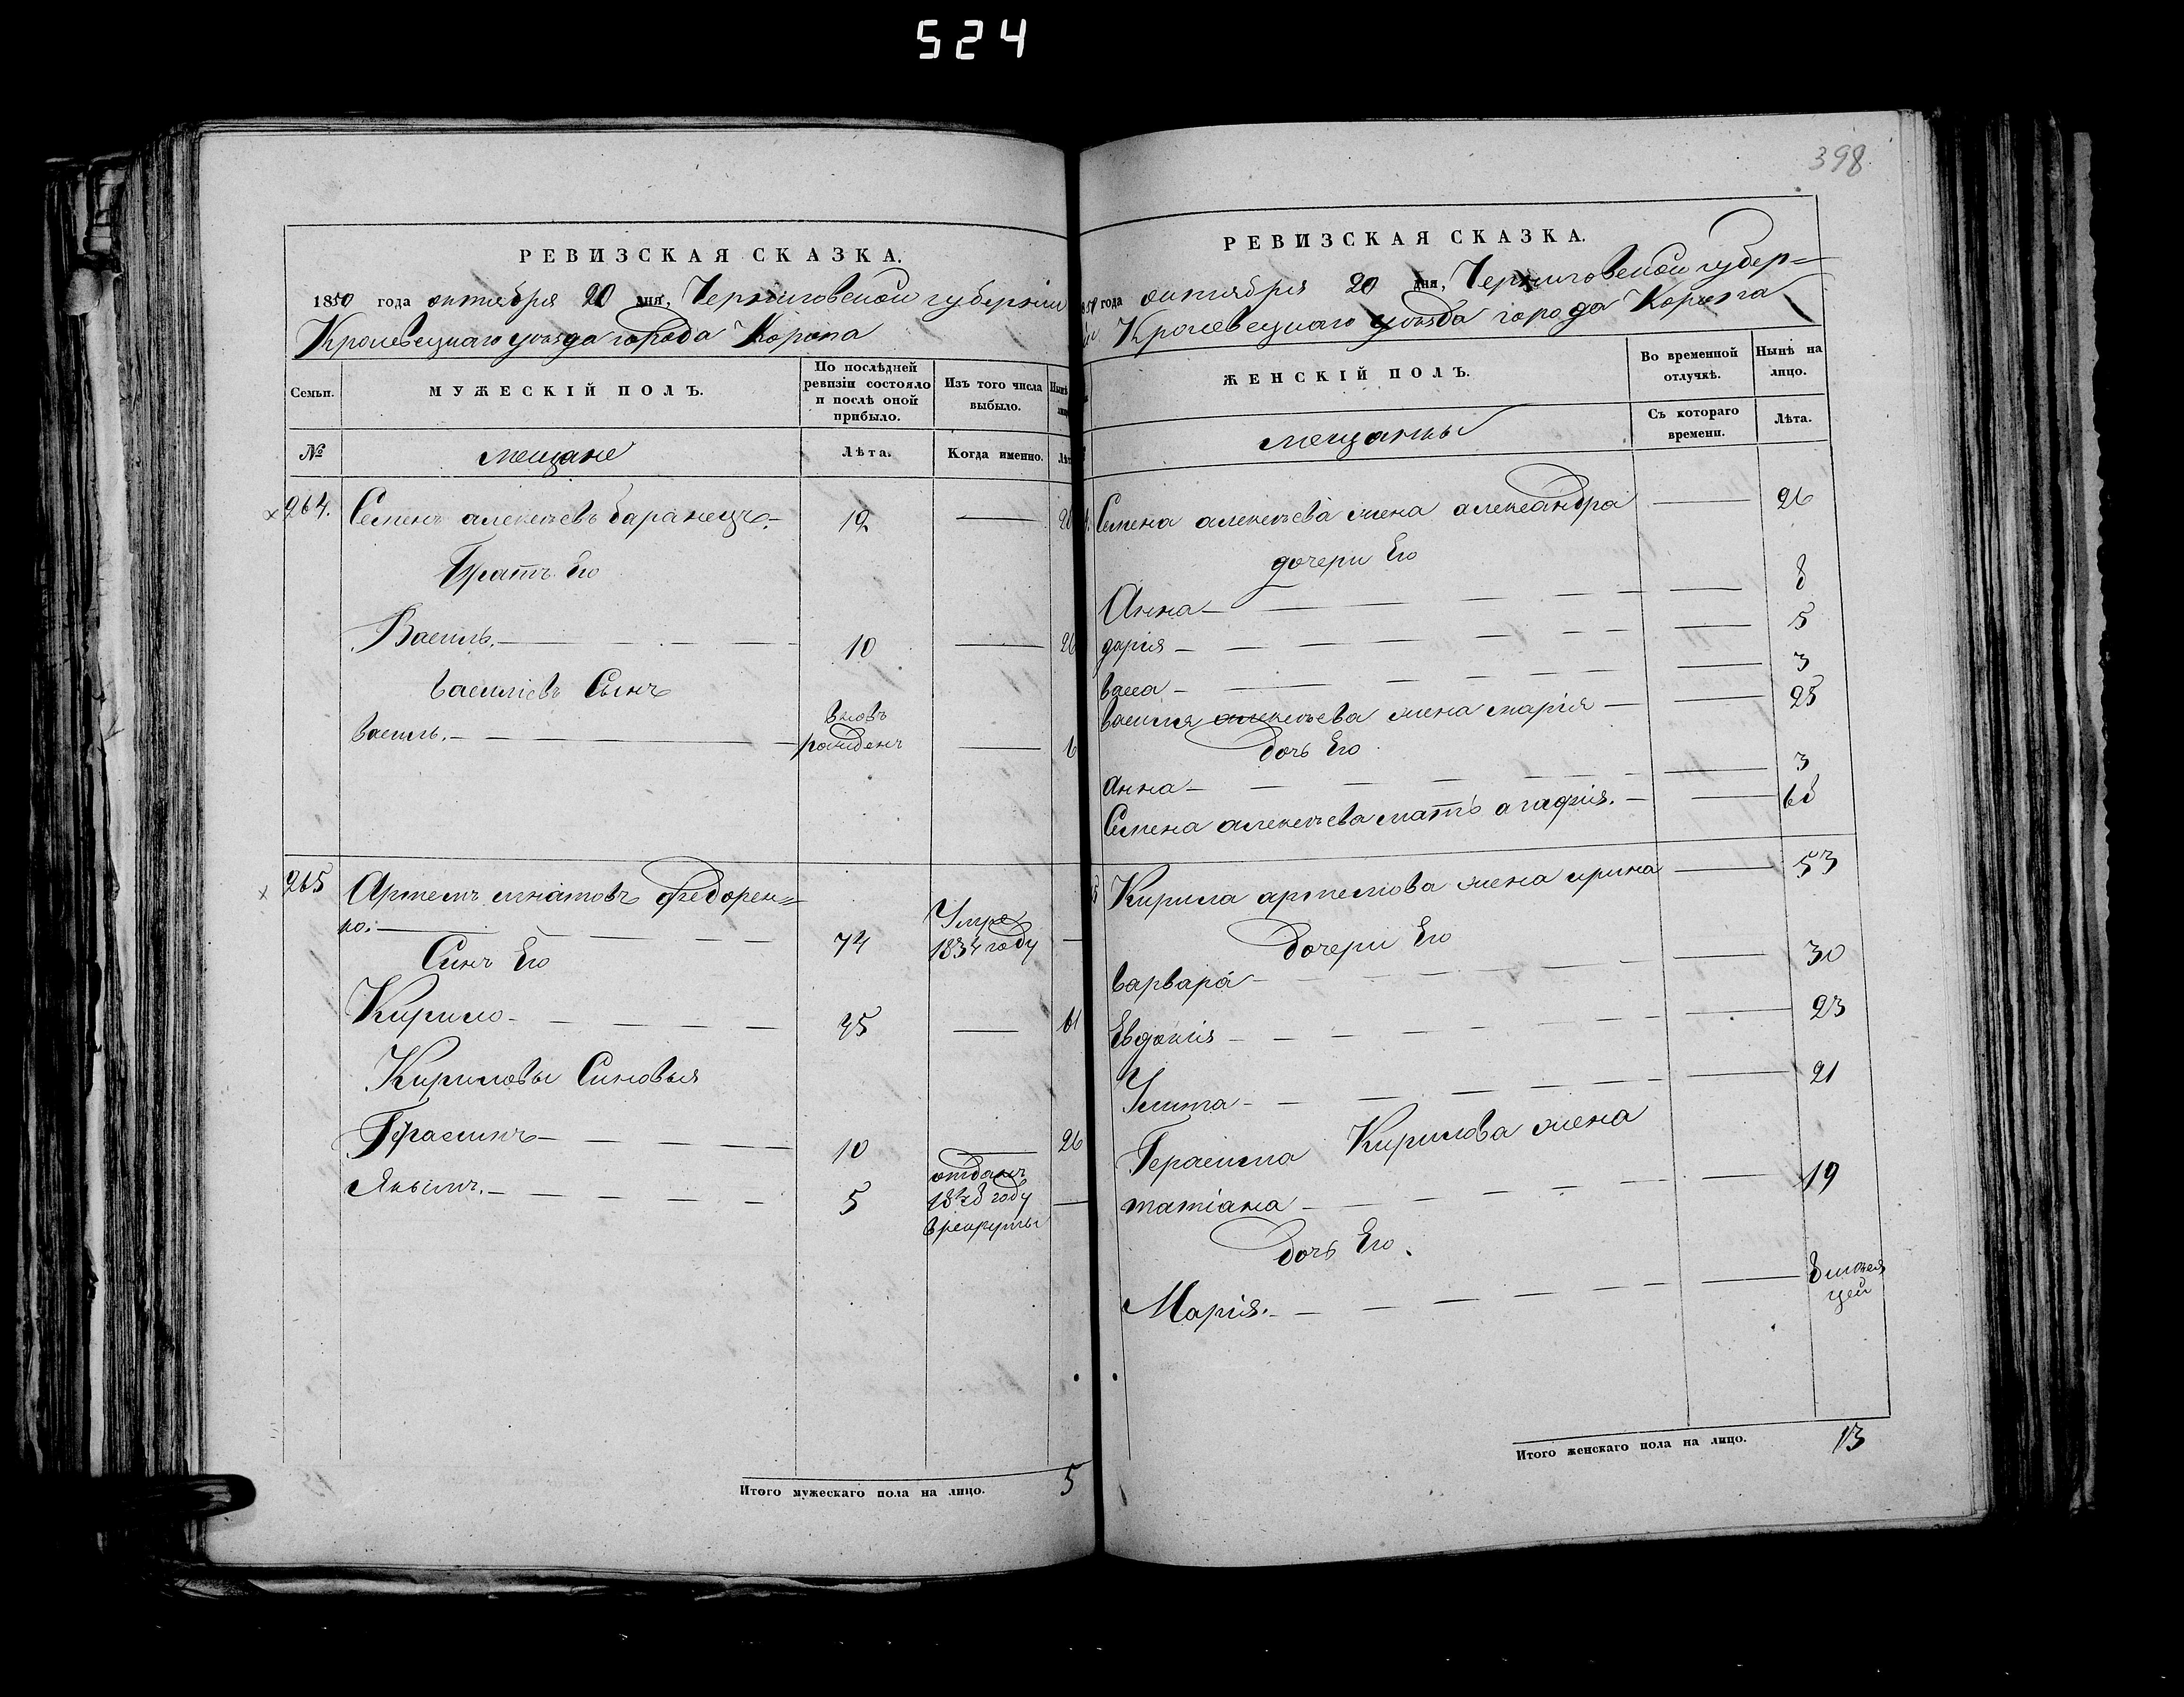 524
398
РЕВИЗСКАЯ СКАЗКА.
1850 года октября 20 дня, Черниговской губернии
Кролевецкаго уѣзда города Коропа
Семьи.
МУЖЕСКІЙ ПОЛЪ.
По послѣдней ревизіи состояло и послѣ оной прибыло.
Изъ того числа выбыло.
Нынѣ
№
мещане
Лѣта.
Когда именно.
264. Семенъ алексѣевъ баранецъ. 12
Братъ Его
Василь. 10 26
василіевъ Сынъ
василь. вновь рожденъ 6
265 Артемъ игнатовъ федорен=
ко: 74 Умре 1834 году
Синъ Его
Кирило 45 61
Кириловы Синовья
Герасимъ 10 26
Якымъ. 5 отданъ 1848 году в рекруты
Итого мужескаго пола на лицо. 5
РЕВИЗСКАЯ СКАЗКА.
1850 года октября 20 дня, Черниговской губер=
ніи Кролевецкаго уѣзда города Коропа
ЖЕНСКІЙ ПОЛЪ.
Во временной отлучкѣ.
Нынѣ на лицо.
мещанки
Съ котораго времени.
Лѣта.
Семена алексѣева жена александра 26
дочери Его
Анна 8
дарія 5
васса 3
василя алексѣева жена марія 25
дочь Его
анна 3
Семена алексѣева мать агафія. 68
Кирила артемова жена ирина 53
дочери Его
варвара 30
Евдокія 23
Улита 21
Герасима Кирилова жена
татіана 19
дочь Его.
Марія. 8 мѣся
цей
Итого женскаго пола на лицо. 13